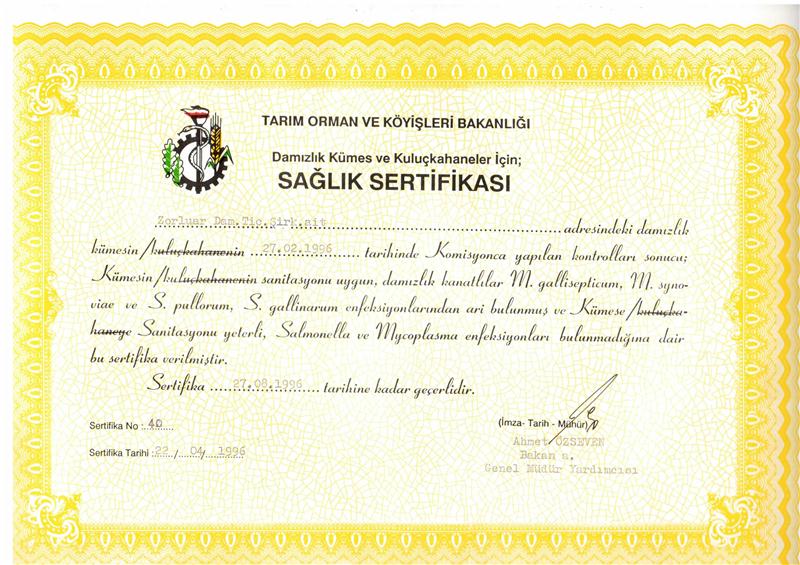 TARIM ORMAN VE KÖYİŞLERİ BAKANLIĞI
Damızlık Kümes ve Kuluçkahaneler İçin;
SAĞLIK SERTİFİKASI
Zorluar Dam.Tic.Şirk.ait adresindeki damızlık
kümesin/kuluçkahanenin 27.02.1996 tarihinde Komisyonca yapılan kontrolları sonucu;
Kümesin/kuluçkahanenin sanitasyonu uygun, damızlık kanatlılar M. gallisepticum, M. syno-
viae ve S. pullorum, S. gallinarum enfeksiyonlarından ari bulunmuş ve Kümese/kuluçka-
haneye Sanitasyonu yeterli, Salmonella ve Mycoplasma enfeksiyonları bulunmadığına dair
bu sertifika verilmiştir.
Sertifika 27.08.1996 tarihine kadar geçerlidir.
Sertifika No : 40
(İmza- Tarih - Mühür)
Sertifika Tarihi : 22 / 04 / 1996
Ahmet ÖZSEVEN
Bakan a.
Genel Müdür Yardımcısı